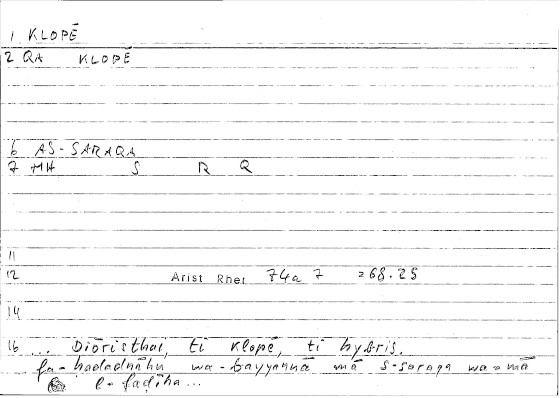 1 KLOPĒ
2 QA KLOPĒ
6 AS-SARAQA
7 MH S R Q
11
12 Arist Rhet 74a 7 = 68.25
14
16 ... Diōristhai, ti klopē, ti hybris.
fa-ḥadadnāhu wa-bayyannā mā s-saraqa wa-mā
l-faḍīḥa...